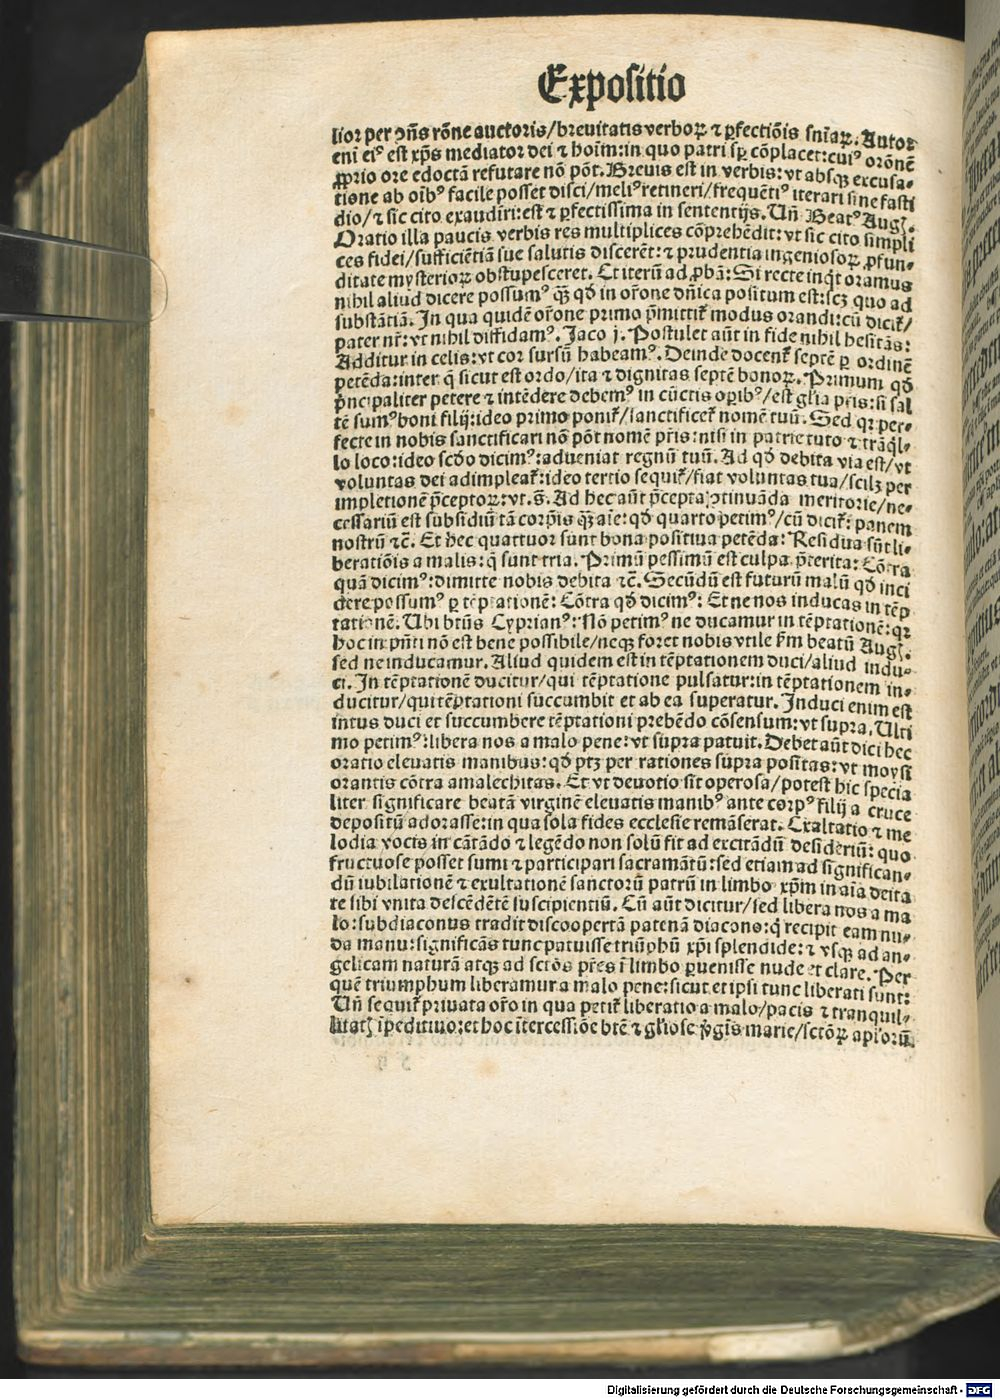 Expositio
lior per ↄñs rõne auctoris/breuitatis verboꝝ ⁊ ꝑfectiõis sniaꝝ. Autor
eni eiꝰ est xp̃s mediator dei ⁊ hoĩm:in quo patri sp̱ cõplacet:cuiꝰ orõnẽ
ꝓprio ore edoctã refutare nõ põt. Breuis est in verbis:vt absqꝫ excusa⸗
tione ab oĩbꝰ facile posset disci/meliꝰ retineri/frequẽtiꝰ iterari sine fasti
dio/⁊ sic cito exaudiri:est ⁊ ꝑfectissima in sententijs. Uñ Beatꝰ Augꝭ.
Oratio illa paucis verbis res multiplices cõprehẽdit: vt sic cito simpli
ces fidei/sufficiẽtiã sue salutis discerẽt: ⁊ prudentia ingeniosoꝝ ꝓfun⸗
ditate mysterioꝝ obstupesceret. Et iterũ ad ꝓbã: Si recte inq̃t oramus
nihil aliud dicere possumꝰ qꝫ̃ qď in or̃one dñica positum est:scꝫ quo ad
substãtiã. In qua quidẽ or̃one primo p̃mittit᷑ modus orandi:cũ dicit᷑/
pater nr̃: vt nihil diffidamꝰ. Jaco j. Postulet aũt in fide nihil hesitãs:
Additur in celis:vt cor sursũ habeamꝰ. Deinde docent᷑ septẽ ꝑ ordinẽ
petẽda:inter q̃ sicut est ordo/ita ⁊ dignitas septẽ bonoꝝ. Primum qď
p̃ncipaliter petere ⁊ intẽdere debemꝰ in cũctis oꝑibꝰ/est gl̃ia pr̃is: si sal
tẽ sumꝰ boni filij:ideo primo ponit᷑/sanctificet᷑ nomẽ tuũ. Sed qꝛ per⸗
fecte in nobis sanctificari nõ põt nomẽ pr̃is: nisi in patrie tuto ⁊ trãq̃l⸗
lo loco:ideo scďo dicimꝰ:adueniat regnũ tuũ. Ad qď debita via est/vt
voluntas dei adimpleat᷑:ideo tertio sequit᷑/fiat voluntas tua/scilꝫ per
impletionẽ p̃ceptoꝝ:vt.s̃. Ad hec aũt p̃cepta ↄtinuãda meritorie/ne⸗
cessariũ est subsidiũ tã corp̱is qꝫ̃ aĩe: qď quarto petimꝰ/cũ dicit᷑: panem
nostrũ ⁊c̃. Et hec quattuor sunt bona positiua petẽda: Residua sũt li⸗
beratiõis a malis: q̃ sunt tria. Primũ pessimũ est culpa p̃terita: Cõtra
quã dicimꝰ:dimitte nobis debita ⁊c̃. Secũdũ est futurũ malũ qď inci
dere possumꝰ ꝑ tẽptationẽ: Cõtra qď dicimꝰ: Et ne nos inducas in tẽp
tationẽ. Ubi btũs Cyprianꝰ: Nõ petimꝰ ne ducamur in tẽptationẽ: qꝛ
hoc in pñti nõ est bene possibile/neqꝫ foret nobis vtile ẜm beatũ Augꝭ.
sed ne inducamur. Aliud quidem est in tẽptationem duci/aliud indu⸗
ci. In tẽptationẽ ducitur/qui tẽptatione pulsatur:in tẽptationem in⸗
ducitur/qui tẽptationi succumbit et ab ea superatur. Induci enim est
intus duci et succumbere tẽptationi prebẽdo cõsensum:vt supra. Ulti
mo petimꝰ:libera nos a malo pene: vt supra patuit. Debet aũt dici hec
oratio eleuatis manibus: qď ptꝫ per rationes supra positas: vt moysi
orantis cõtra amalechitas. Et vt deuotio sit operosa/potest hic specia
liter significare beatã virginẽ eleuatis manibꝰ ante corpꝰ filij a cruce
depositũ adorasse:in qua sola fides ecclesie remãserat. Exaltatio ⁊ me
lodia vocis in cãtãdo ⁊ legẽdo non solũ fit ad excitãdũ desideriũ: quo
fructuose posset sumi ⁊ participari sacramẽtũ:sed etiam ad significan⸗
dũ iubilationẽ ⁊ exultationẽ sanctorũ patrũ in limbo xp̃m in aĩa deita
te sibi vnita descẽdẽtẽ suscipientiũ. Cũ aũt dicitur/sed libera nos a ma
lo:subdiaconus tradit discoopertã patenã diacono:q̇ recipit eam nu⸗
da manu:significãs tunc patuisse triũphũ xp̃i splendide: ⁊ vsqꝫ ad an⸗
gelicam naturã atqꝫ ad sctõs pr̃es ĩ limbo ꝑuenisse nude et clare. Per
quẽ triumphum liberamur a malo pene:sicut et ipsi tunc liberati sunt:
Uñ sequit᷑ priuata or̃o in qua petit᷑ liberatio a malo/pacis ⁊ tranquil⸗
litatꝭ ĩpeditiuo:et hoc ĩtercessiõe btẽ ⁊ gl̃iose ṽgĩs marie/sctõꝝ apl̃orũ
Digitalisierung gefördert durch die Deutsche Forschungsgemeinschaft - DFG